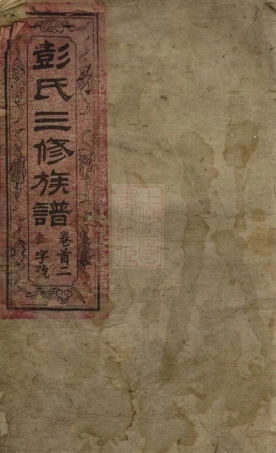 彭氏三修族譜
卷首二
字號